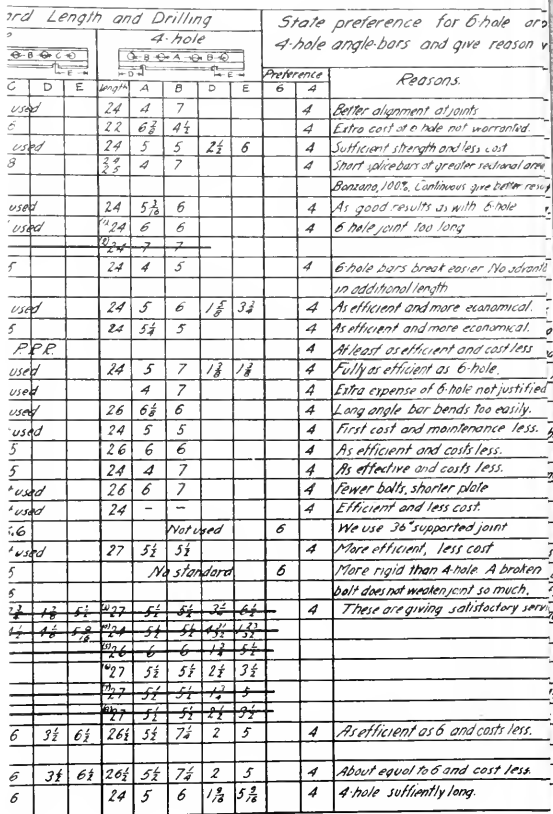 ord Length and Drilling State preference for 6-hole or
4-hole 4-hole angle-bars and give reason
B C B A B
E D E Preference
C D E Length A B D E 6 4 Reasons.
used 24 4 7 4 Better alignment at joints
6 22 6 3/8 4 1/2 4 Extra cost of 6 hole not warranted.
used 24 5 5 2 1/2 6 4 Sufficient strength and less cost
8 4 7 4 Short splice bars of greater sectional area
Bonzano, 100%. Continuous give better
used 24 6 4 As good results as with 6-hole
used (1) 24 6 6 4 6 hole joint too long
(2) 24 7 7
5 24 4 5 4 6-hole bars break easier No
in additional length
used 24 5 6 1 5/8 3 3/4 4 As efficient and more economical.
5 24 5 1/4 5 4 As efficient and more economical.
P.R.R. 4 At least as efficient and cost less
used 24 5 7 4 Fully as efficient as 6-hole.
used 4 7 4 Extra expense of 6-hole not justified
used 26 6 1/8 6 4 Long angle bar bends too easily.
used 24 5 5 4 First cost and maintenance less.
5 26 6 6 4 As efficient and costs less.
5 24 4 7 4 As effective and costs less.
used 26 6 7 4 Fewer bolts, shorter plate
used 24 – – 4 Efficient and less cost.
6 Not used 6 We use 36" supported joint
used 27 5 1/2 5 1/2 4 More efficient, less cost
5 No standard 6 More rigid than 4-hole. A broken
6 bolt does not weaken joint so much.
27 5 1/2 5 1/2 6 1/2 4 These are giving satisfactory
24 5 1/2 5 1/2
26 6 6 1 3/4 5 1/2
27 5 1/2 5 1/2 2 1/2 3 1/2
27 5 1/2 5 1/2 1 3/4 5
27 5 1/2 5 1/2 2 1/2 3 1/2
6 3 1/2 6 1/2 26 1/2 5 1/2 7 1/4 2 5 4 As efficient as 6 and costs less.
6 3 1/2 6 1/2 26 1/2 5 1/2 7 1/4 2 5 4 About equal to 6 and cost less.
6 24 5 6 1 9/16 5 9/16 4 4-hole suffiently long.